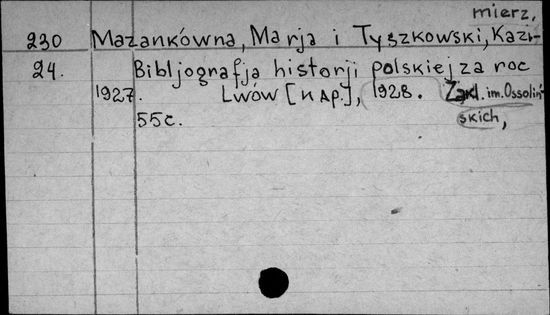 mierz,
230 Mazankówna, Marja i Tyszkowski, Kazi-
24. Bibljografja historji polskiej za roc
1927. Lwów [nap.], 1928. Zakł. im. Ossoliń-
55c. skich,